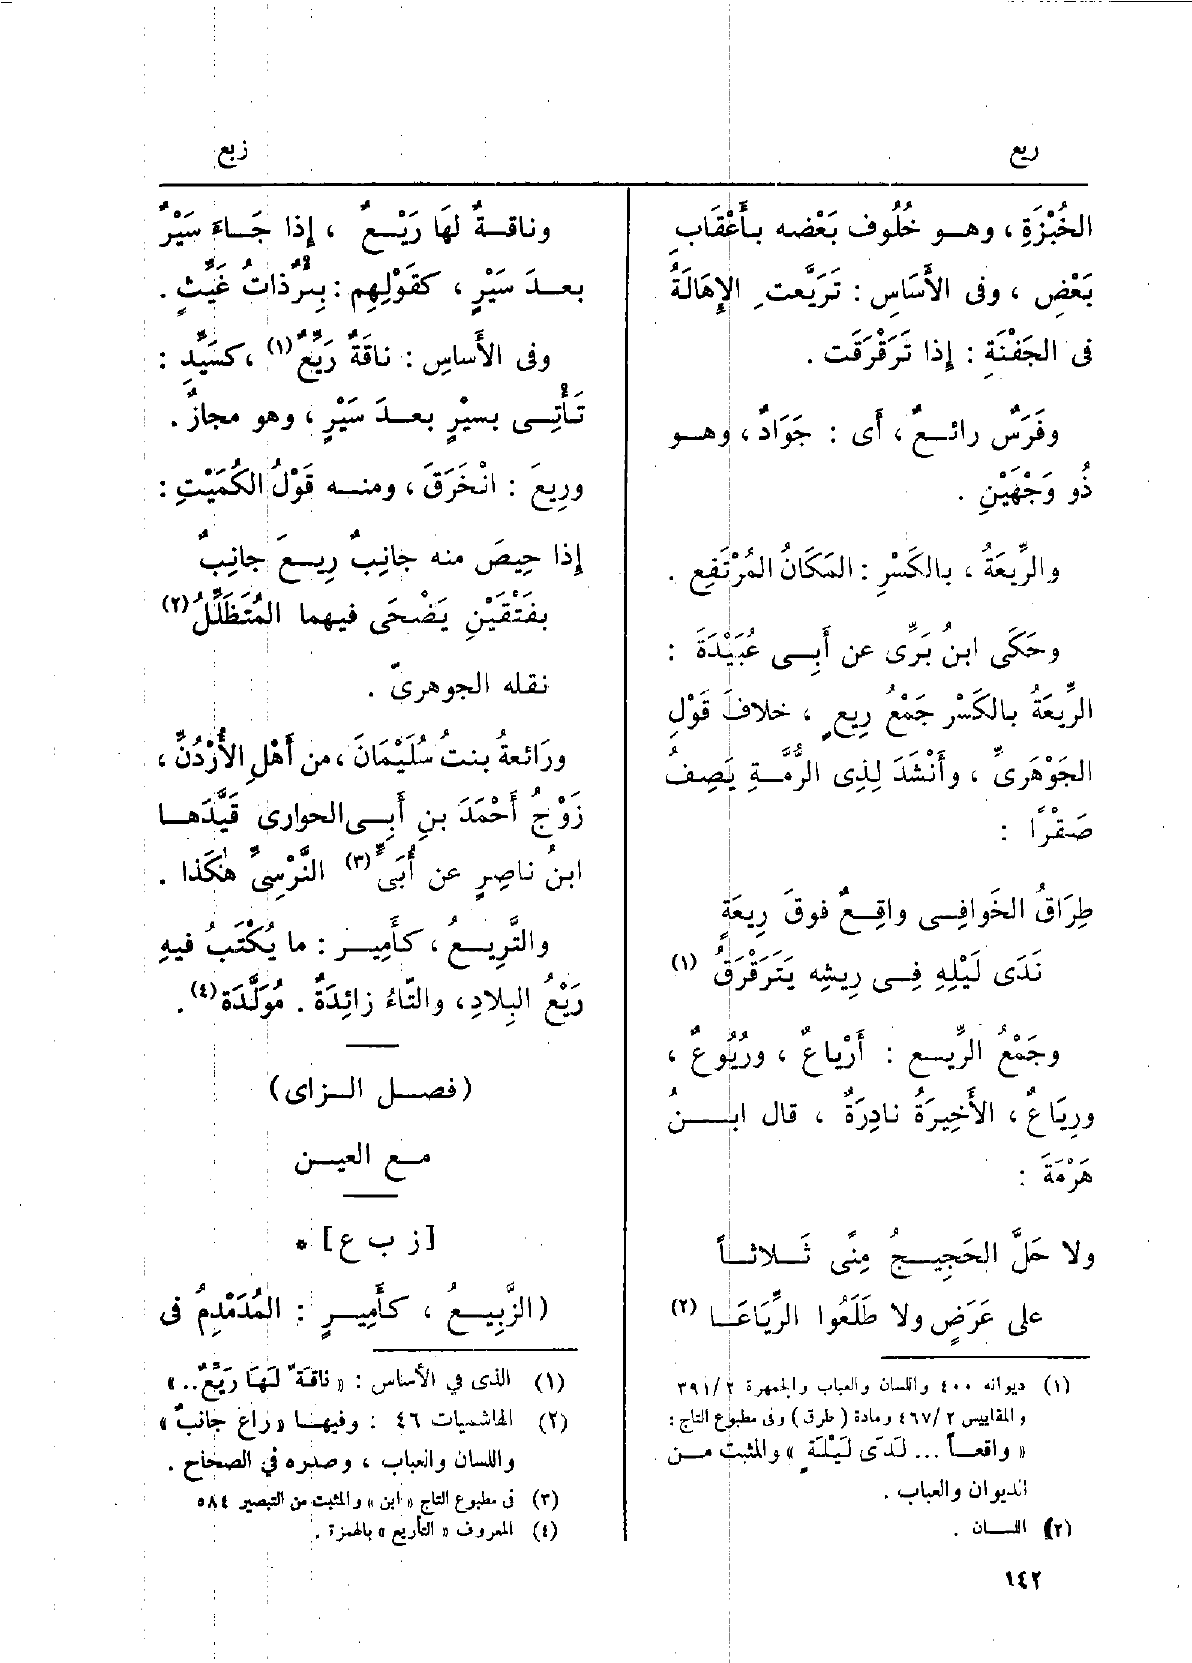 ريع
زبع
الخُبْزَةِ ، وهــو خُلُوف بَعْضه بـأَعْقَابِ
بَعْضِ ، وفى الأَسَاسِ : تَرَيَّعت ِ الإِهَالَةُ
فى الجَفْنَةِ : إذا تَرَقْرَقَت .
وفَرَسٌ رائــعٌ ، أَى : جَوَادٌ ، وهــو
ذُو وَجْهَيْنِ .
والرِّيعَةُ ، بالكَسْرِ : المَكَانُ المُرْتَفِع .
وحَكَى ابنُ بَرِّى عن أَبِــى عُبَيْدَةَ :
الرِّيعَةُ بالكَسْر جَمْعُ رِيعٍ ، خلافَ قَوْلِ
الجَوْهَرِىِّ ، وأَنْشَدَ لِذِى الرُّمَّــةِ يَصِفُ
صَقْرًا :
طِرَاقُ الخَوافِــى واقِــعٌ فوقَ رِيعَةٍ
نَدَى لَيْلِهِ فِــى رِيشِه يَتَرَقْرَقُ (١)
وجَمْعُ الرِّيــع : أَرْيَاعٌ ، ورُيُوعٌ ،
ورِيَاعٌ ، الأَخِيرَةُ نادِرَةٌ ، قال ابــنُ
هَرْمَةَ :
ولا حَلَّ الحَجِيــجُ مِنًى ثَــلاثــاً
على عَرَضٍ ولا طَلَعُوا الرِّيَاعَــا (٢)
(١) ديوانه ٤٠٠ واللسان والعباب والجمهرة ٣٩١/٢
والمقاييس ٤٦٧/٢ ومادة (طرق) وفى مطبوع التاج :
« واقعــاً ... لَدَى لَيْلَةٍ » والمثبت مــن
الديوان والعباب .
(٢) اللســان .
١٤٢
وناقــةٌ لهَا رَيْــعٌ ، إذا جَــاءَ سَيْرٌ
بعــدَ سَيْرٍ ، كقَوْلِهِم : بِئْرٌ ذاتُ غَيِّثٍ .
وفى الأَساسِ : ناقَةٌ رَيِّعٌ (١) ، كسَيِّدٍ :
تَأْتِــى بسيْرٍ بعــدَ سَيْرٍ ، وهو مجازٌ .
ورِيعَ : انْخَرَقَ ، ومنــه قَوْلُ الكُمَيْتِ :
إذا حِيصَ منه جانِبٌ رِيــعَ جانِبٌ
بفَتْقَيْنِ يَضْحَى فيهما المُتَظَلِّلُ (٢)
نقله الجوهرىّ .
ورَائعةُ بنتُ سُلَيْمَانَ ، من أَهْلِ الأُرْدُنِّ ،
زَوْجُ أَحْمَدَ بنِ أَبِــى الحوارى قَيَّدَهــا
ابنُ ناصِرٍ عن أُبَىٍّ (٣) النَّرْسِىِّ هٰكَذا .
والتَّرِيــعُ ، كأَمِيــر : ما يُكْتَبُ فيهِ
رَيْعُ البِلادِ ، والتّاءُ زائِدَةٌ . مُوَلَّدَة (٤) .
(فصــل الــزاى)
مــع العيــن
[ز ب ع] *
(الزَّبِيــعُ ، كأَمِيــرٍ : المُدَمْدِمُ فى
(١) الذى في الأساس : « ناقَةٌ لَهَا رَيْعٌ.. »
(٢) الهاشميات ٤٦ : وفيهــا « راعَ جانبٌ »
واللسان والعباب ، وصدره في الصحاح .
(٣) فى مطبوع التاج « ابن » والمثبت من التبصير ٥٨٤
(٤) المعروف « التأريع » بالهمزة .